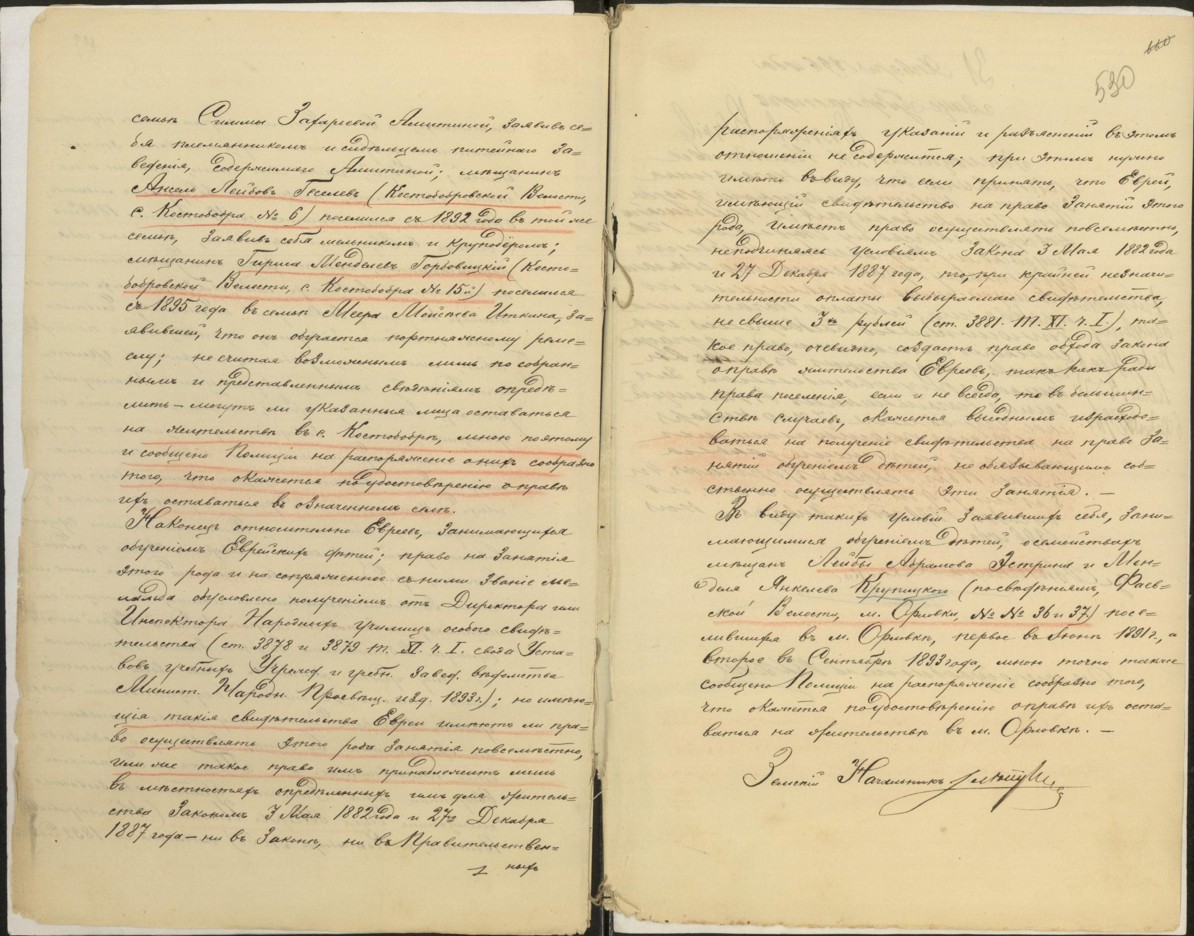 семьѣ Симмы Захарьевой Аншиной, заявивъ се=
бя племянникомъ и сидѣльцемъ питейнаго за=
веденія, содержимаго Аншиной; мѣщанинъ
Ансель Лейбовъ Геселевъ (Костобобровской Волости,
с. Костобобра № 6) поселился съ 1892 года въ той же
семьѣ, заявивъ себя мельникомъ и круподёромъ;
мѣщанинъ Гирша Менделевъ Горбовицкій (Косто=
бобровской Волости, с. Костобобра № 15й) поселился
съ 1895 года въ семьѣ Меера Мойсѣева Иткина, за=
явившей, что онъ обучается портняжному реме=
слу; не считая возможнымъ лишь по собран=
нымъ и представленнымъ свѣдѣніямъ опредѣ=
лить – могутъ ли указанныя лица оставаться
на жительствѣ въ с. Костобобрѣ, мною поэтому
и сообщено Полиціи на распоряженіе о нихъ сообразно
того, что окажется по удостовѣренію о правѣ
ихъ оставаться въ означенномъ селѣ.
Наконецъ относительно Евреевъ, занимающихся
обученіемъ Еврейскихъ дѣтей; право на занятія
этого рода и на сопряженное съ ними званіе ме=
ламда обусловлено полученіемъ отъ Директора или
Инспектора Народныхъ училищъ особого свидѣ=
тельства (ст. 3878 и 3879 т. XI. ч. I. свода Уста=
вовъ учебныхъ Учрежд. и учебн. завед. вѣдомства
Минист. Народн. Просвѣщ. изд. 1893 г.); но имѣю=
щія такія свидѣтельства Евреи имѣютъ ли пра=
во осуществлять этого рода занятія повсемѣстно,
или же такое право имъ принадлежитъ лишь
въ мѣстностяхъ опредѣленныхъ имъ для житель=
ства Закономъ 3 Мая 1882 года и 27го Декабря
1887 года – ни въ Законѣ, ни въ Правительствен=
ныхъ
530
распоряженіяхъ указаній и разъясненій въ этомъ
отношеніи не содержится; при этомъ нужно
имѣть въ виду, что если принять, что Еврей,
имѣющій свидѣтельство на право занятій этого
рода, имѣетъ право осуществлять повсемѣстно,
неподчиняясь условіямъ Закона 3 Мая 1882 года
и 27 Декабря 1887 года, то, при крайней незначи=
тельности оплаты выбираемаго свидѣтельства,
не свыше 3хъ рублей (ст. 3881. т. XI. ч. I), та=
кое право, очевидно, создастъ право обхода закона
о правѣ жительства Евреевъ, такъ какъ ради
права поселенія, если и не всегда, то въ большин=
ствѣ случаевъ, окажется выгоднымъ израсходо=
ваться на полученіе свидѣтельства на право за=
нятій обученіемъ дѣтей, не обязывающимъ соб=
ственно осуществлять эти занятія. –
Въ виду такихъ условій заявившихъ себя, зани=
мающимися обученіемъ дѣтей, о семействахъ
мѣщанъ Лейбы Абрамова Эстрина и Мен=
деля Янкелева Крупицкого (по свѣдѣніямъ, Фаев=
ской Волости, м. Орловки, №№ 36 и 37) посе=
лившихся въ м. Орловкѣ, первое въ Іюнѣ 1891 г., а
второе въ Сентябрѣ 1893 года, мною точно также
сообщено Полиціи на распоряженіе сообразно того,
что окажется по удостовѣренію о правѣ ихъ оста=
ваться на жительствѣ въ м. Орловкѣ. –
Земскій Начальникъ